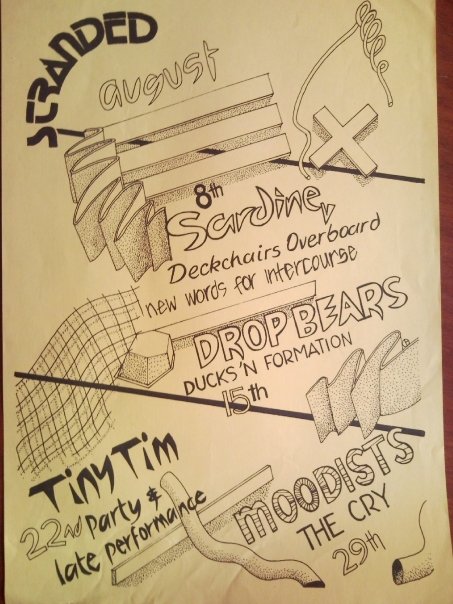 STRANDED
august
8th
Sardine v
Deckchairs Overboard
new words for intercourse
DROP BEARS
DUCKS 'N FORMATION
15th
Tiny Tim
22nd Party &
late performance
MOODISTS
THE CRY
29th